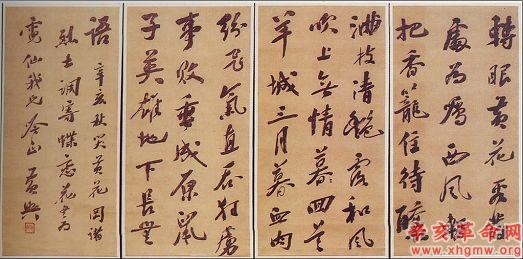 轉眼黃花看發
處為囑西風暫
把香籠住待釀
滿枝清艷露和風
吹上無情墓回首
羊城三月暮血肉
紛飛氣直吞狂虜
事敗垂成原鼠
子英雄地下長無
語 辛亥秋哭黃花岡諸
烈士調寄蝶戀花書為
仙我兄正 黃興
辛亥革命网
www.xhgmw.org